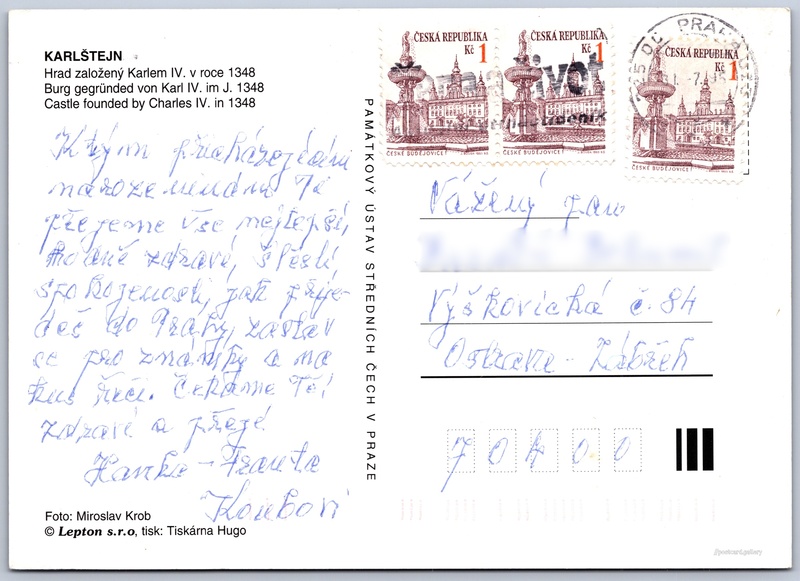 KARLŠTEJN
Hrad založený Karlem IV. v roce 1348
Burg gegründed von Karl IV. im J. 1348
Castle founded by Charles IV. in 1348
K tvým přicházejícím
narozeninám Ti
přejeme vše nejlepší,
hodně zdraví, štěstí,
spokojenosti, jak přije-
deš do Prahy, zastav
se pro známky a na
kus řeči. Čekáme Tě,
zdraví a přejí
Hanka - Franta
Koubovi
Foto: Miroslav Krob
© Lepton s.r.o, tisk: Tiskárna Hugo
PAMÁTKOVÝ ÚSTAV STŘEDNÍCH ČECH V PRAZE
ČESKÁ REPUBLIKA
Kč 1
ČESKÉ BUDĚJOVICE
ČESKÁ REPUBLIKA
Kč 1
ČESKÉ BUDĚJOVICE
ČESKÁ REPUBLIKA
Kč 1
ČESKÉ BUDĚJOVICE
PRAHA
Vážený pan
Výškovická č. 84
Ostrava - Zábřeh
70400
//postcard.gallery